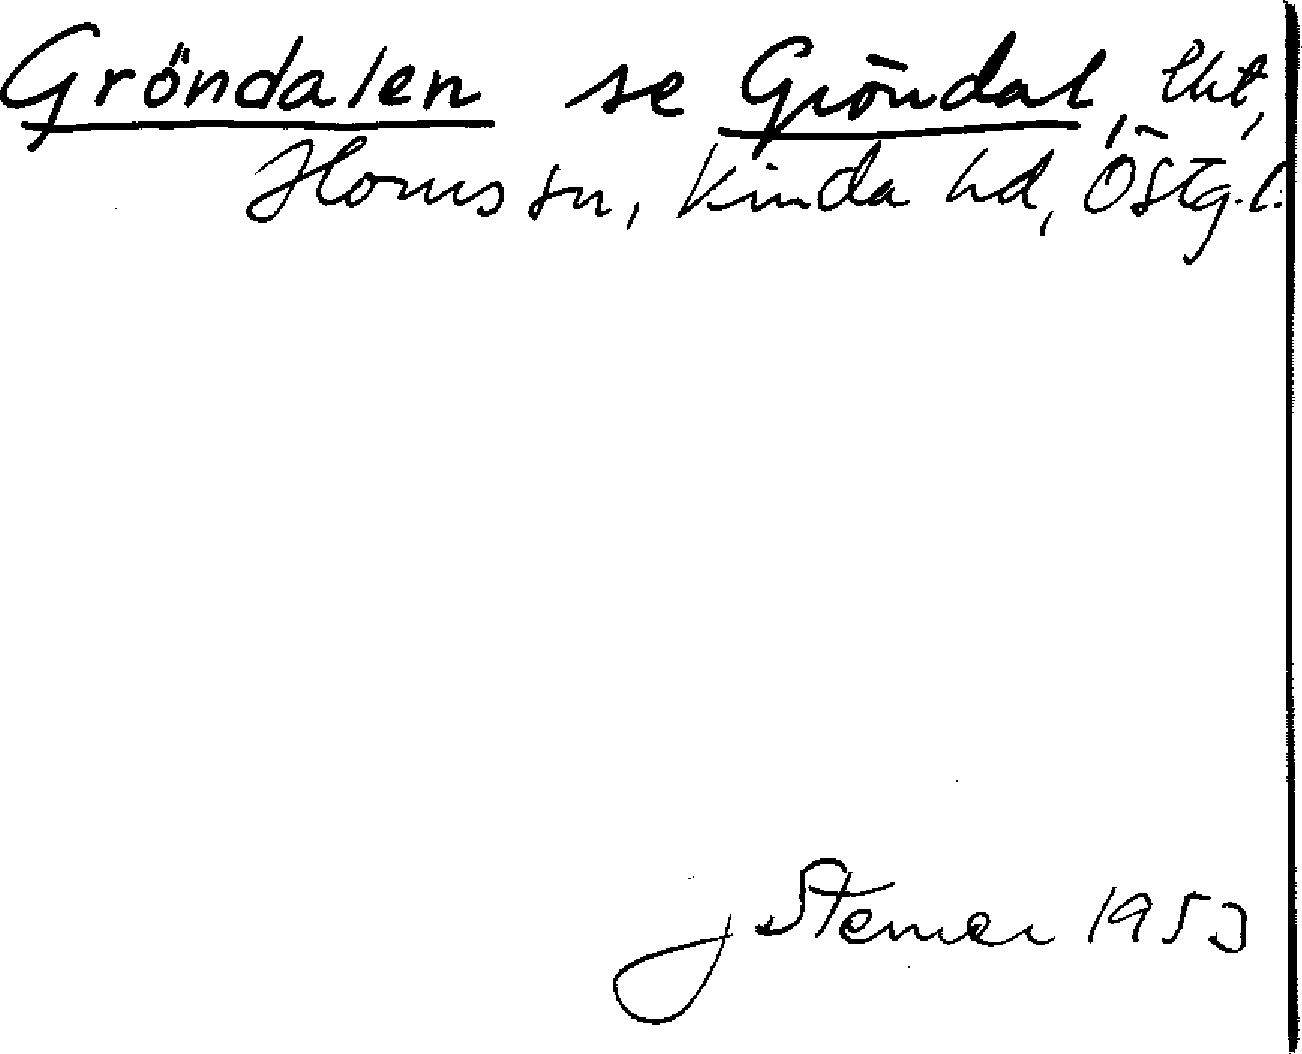 Gröndalen se Gröndal, lht,
Horns sn, Kinda hd, Östg.l.
J Stemer 1953